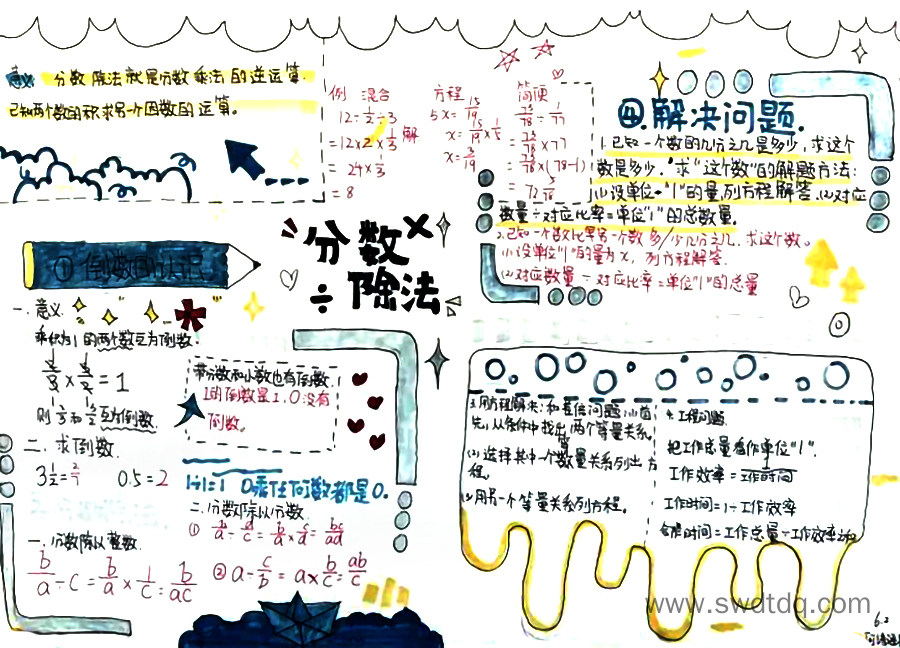 意义 分数除法就是分数乘法的逆运算.
已知两个数的积求另一个因数的运算。
例 混合
12÷1/2÷3
=12×2×1/3
=24×1/3
=8
方程
5x=15/19
解
x=15/19×1/5
x=3/19
简便
73/78÷1/77
=73/78×77
=73/78×(78-1)
=72 5/78
四.解决问题.
1.已知一个数的几分之几是多少,求这个
数是多少."求"这个数"的解题方法:
(1)设单位"1"的量,列方程解答.(2)对应
数量÷对应比率=单位"1"的总数量.
2.已知一个数比另一个数多/少几分之几,求这个数。
(1)设单位"1"的量为x,列方程解答.
(2)对应数量÷对应比率=单位"1"的总量
分数×÷除法
① 倒数的认识
一.意义.
乘积为1的两个数互为倒数.
=1
互为倒数.
二.求倒数.
3 1/2=2/7 0.5=2
带分数和小数也有倒数.
1的倒数是1.0没有
倒数。
1÷1=1 0乘任何数都是0.
一.分数除以整数.
b/a÷c=b/a×1/c=b/ac
二.分数除以分数.
① b/a÷d/c=b/a×c/d=bc/ad
② a÷c/b=a×b/c=ab/c
3.用方程解决:和差倍问题.(1)首
先,从条件中找出两个等量关系.
(2)选择其中一个数量关系列出方
程。
(3)用另一个等量关系列方程。
4.工程问题.
把工作总量看作单位"1".
工作效率=1/工作时间
工作时间=1÷工作效率
时间=工作总量÷工作效率和
www.swdtdq.com
6.2